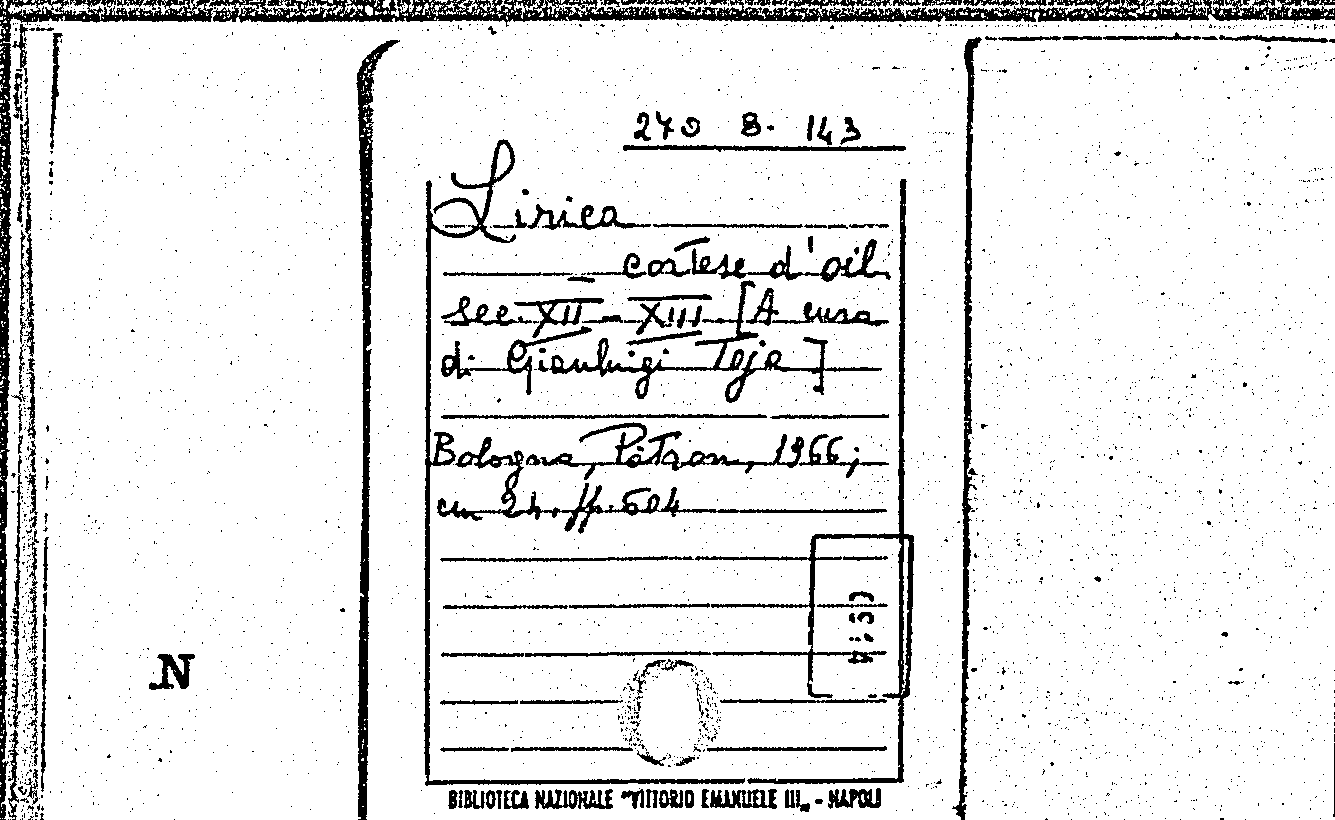 270 B. 143
Lirica
– cortese d'oil
sec. XII - XIII. [A cura
di Gianluigi Toja]
Bologna, Pàtron, 1966;
cm 24. pp. 504
N
BIBLIOTECA NAZIONALE "VITTORIO EMANUELE III„ - NAPOLI